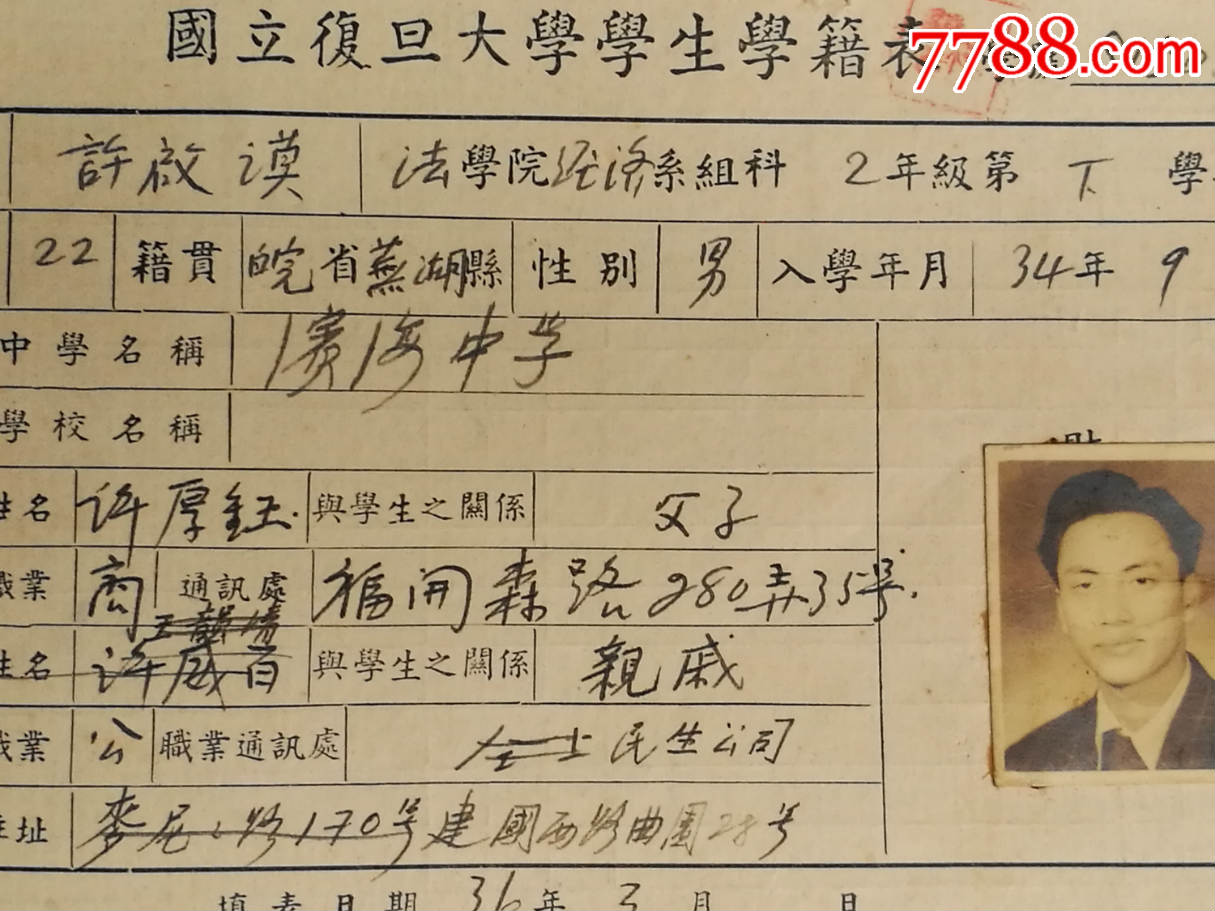 國立復旦大學學生學籍表
7788.com
許啟謨 法學院経済系組科 2年級第下學
22 籍貫 皖省蕪湖縣 性別 男 入學年月 34年9
中學名稱 中学
學校名稱
姓名 许厚鈺 與學生之關係 父子
職業 商 通訊處 福開森路280弄35号
姓名 许威百 與學生之關係 親戚
職業 公 職業通訊處 仝上 民生公司
住址 麥尼尼路170号 建國西路曲園28号
填表日期 36年3月 日